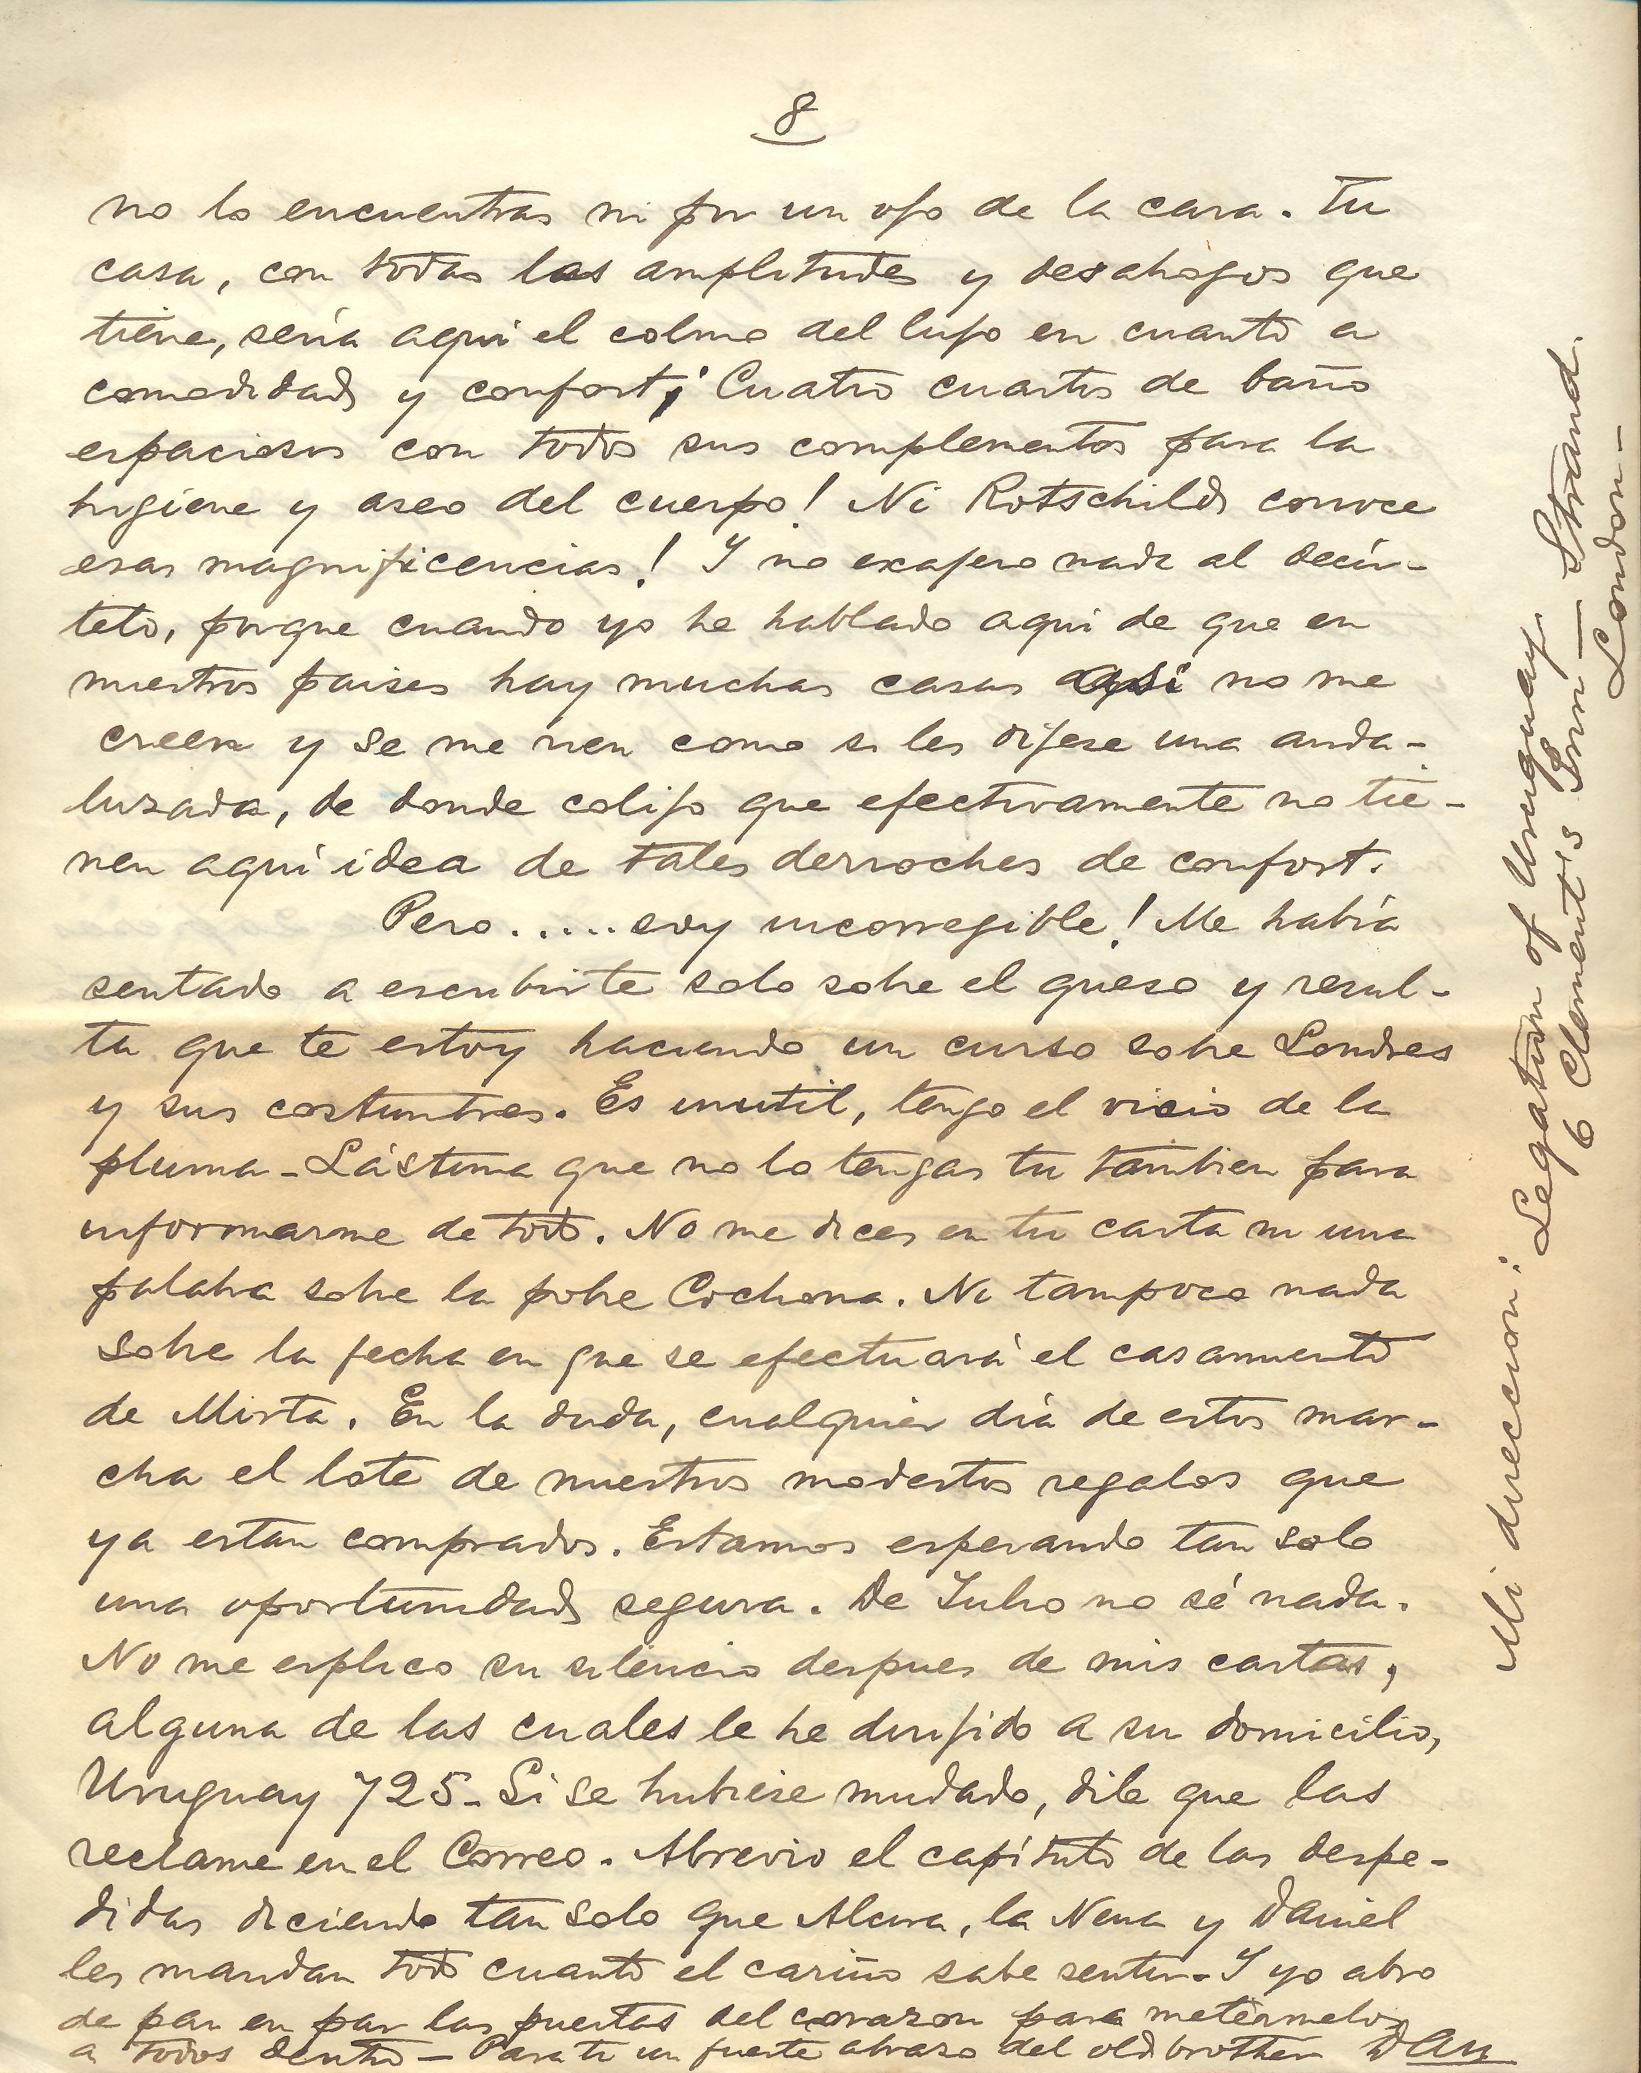 8
no lo encuentras ni por un ojo de la cara. Tu
casa, con todas las amplitudes y desahogos que
tiene, sería aquí el colmo del lujo en cuanto a
comodidad y confort ¡Cuatro cuartos de baño
espaciosos con todos sus complementos para la
higiene y aseo del cuerpo! Ni Rotschild conoce
esas magnificencias! Y no exajero nada al decír-
telo, porque cuando yo he hablado aqui de que en
nuestros paises hay muchas casas asi no me
creen y se me rien como si les dijese una anda-
luzada, de donde colijo que efectivamente no tie-
nen aquí idea de tales derroches de confort.
Pero.....soy incorregible! Me había
sentado a escribirte solo sobre el queso y resul-
ta que te estoy haciendo un curso sobre Londres
y sus costumbres. Es inutil, tengo el vicio de la
pluma - Lástima que no lo tengas tu tambien para
informarme de todo. No me dices en tu carta ni una
palabra sobre la pobre Cochona. Ni tampoco nada
sobre la fecha en que se efectuará el casamiento
de Mirta. En la duda, cualquier día de estos mar-
cha el lote de nuestros modestos regalos que
ya estan comprados. Estamos esperando tan solo
una oportunidad segura. De Julio no sé nada.
No me esplico su silencio despues de mis cartas,
alguna de las cuales le he dirijido a su domicilio,
Uruguay 725 - Si se hubiese mudado, dile que las
reclame en el Correo. Abrevio el capítulo de las despe-
didas diciendo tan solo que Alcira, la Nena y Daniel
les mandan todo cuanto el cariño sabe sentir - Y yo abro
de par en par las puertas del corazon para metérmelos
a todos dentro - Para ti un fuerte abrazo del old brother Dan
Mi direccion: Legation of Uruguay.
6 Clement's Inn — Strand.
London -